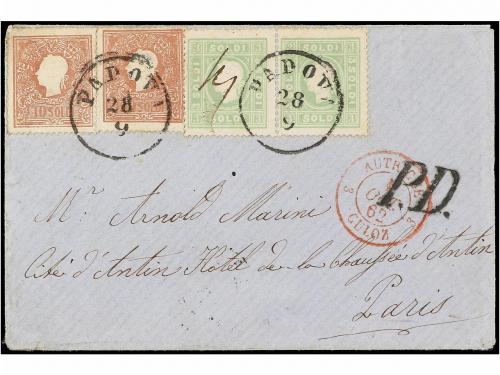 10 SOLDI
SOLDI
SOLDI
PADOVA
28
9
PADOVA
28
9
AUTRICHE
3 3
62
CULOZ
P.D.
Mr. Arnold Marini
Cité d'Antin Hôtel de la Chaussée d'Antin
Paris